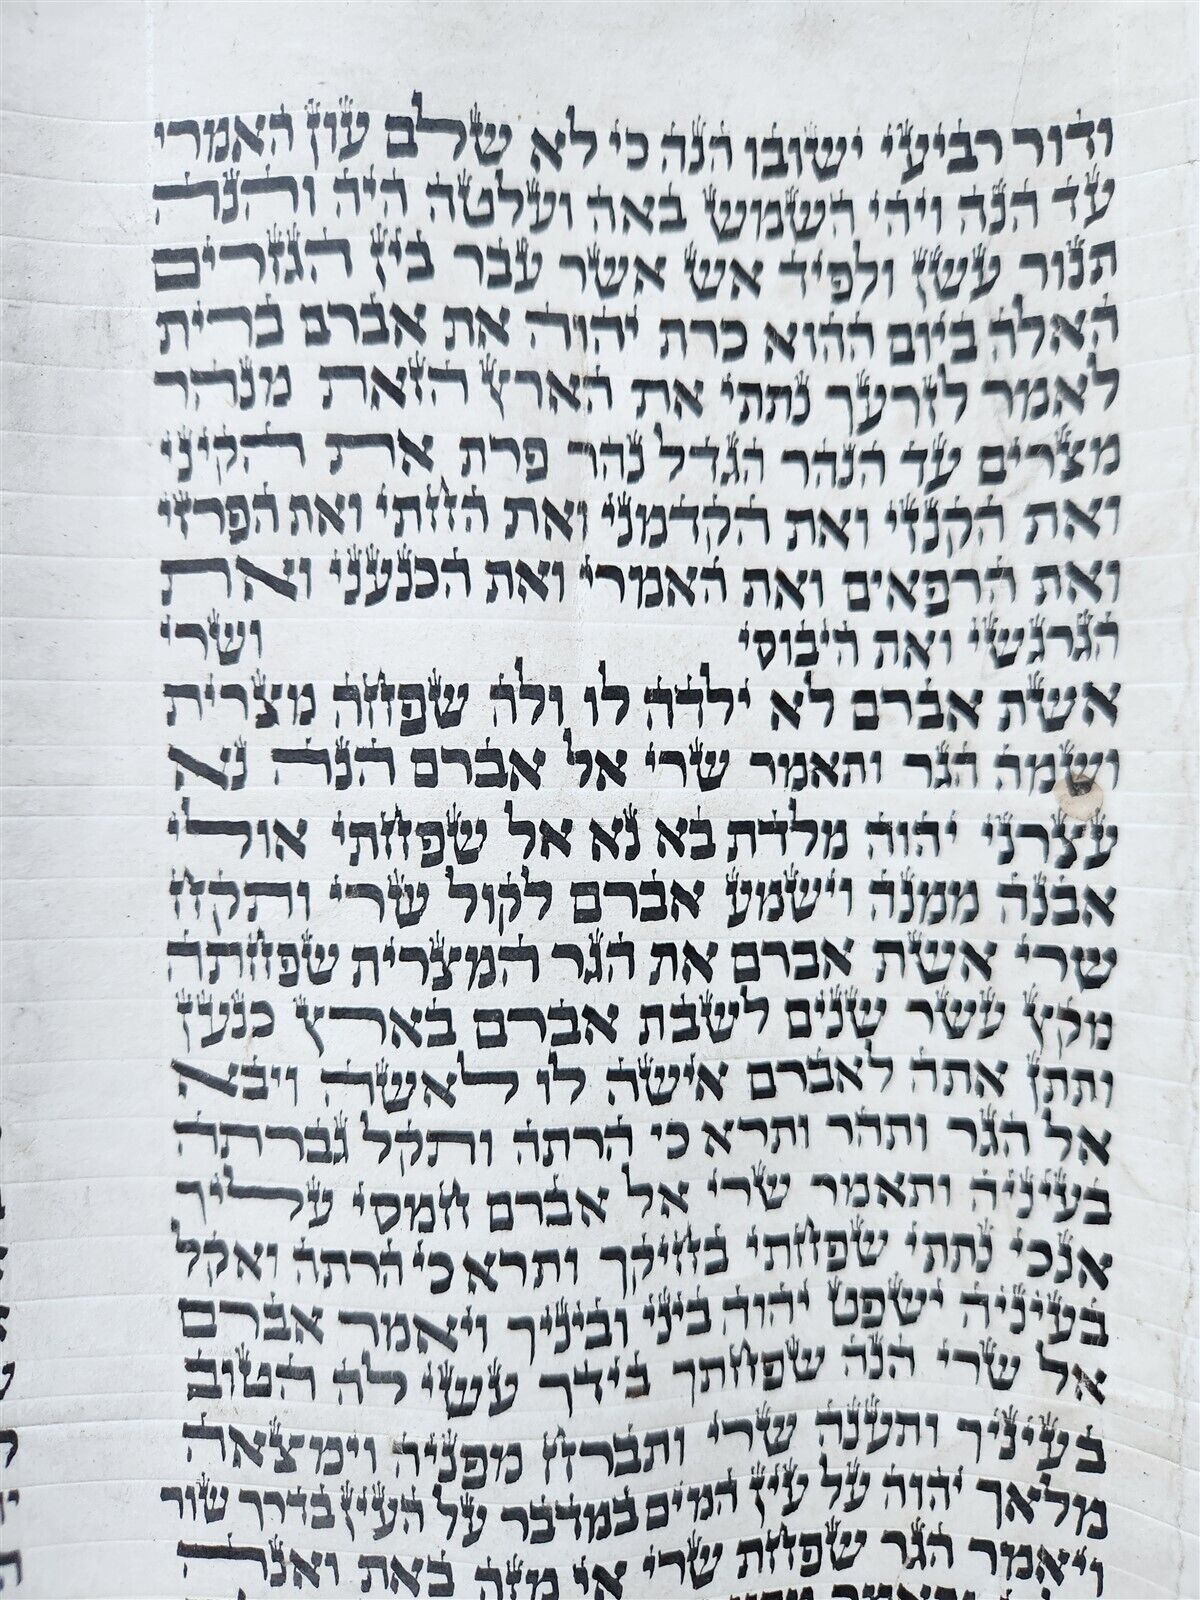 ודור רביעי ישובו הנה כי לא שלם עון האמרי
עד הנה ויהי השמש באה ועלטה היה והנה
תנור עשן ולפיד אש אשר עבר בין הגזרים
האלה ביום ההוא כרת יהוה את אברם ברית
לאמר לזרעך נתתי את הארץ הזאת מנהר
מצרים עד הנהר הגדל נהר פרת את הקיני
ואת הקנזי ואת הקדמני ואת החתי ואת הפרזי
ואת הרפאים ואת האמרי ואת הכנעני ואת
הגרגשי ואת היבוסי ושרי
אשת אברם לא ילדה לו ולה שפחה מצרית
ושמה הגר ותאמר שרי אל אברם הנה נא
עצרני יהוה מלדת בא נא אל שפחתי אולי
אבנה ממנה וישמע אברם לקול שרי ותקח
שרי אשת אברם את הגר המצרית שפחתה
מקץ עשר שנים לשבת אברם בארץ כנען
ותתן אתה לאברם אישה לו לאשה ויבא
אל הגר ותהר ותרא כי הרתה ותקל גברתה
בעיניה ותאמר שרי אל אברם חמסי עליך
אנכי נתתי שפחתי בחיקך ותרא כי הרתה ואקל
בעיניה ישפט יהוה ביני וביניך ויאמר אברם
אל שרי הנה שפחתך בידך עשי לה הטוב
בעיניך ותענה שרי ותברח מפניה וימצאה
מלאך יהוה על עין המים במדבר על העין בדרך שור
ויאמר הגר שפחת שרי אי מזה באת ואנה